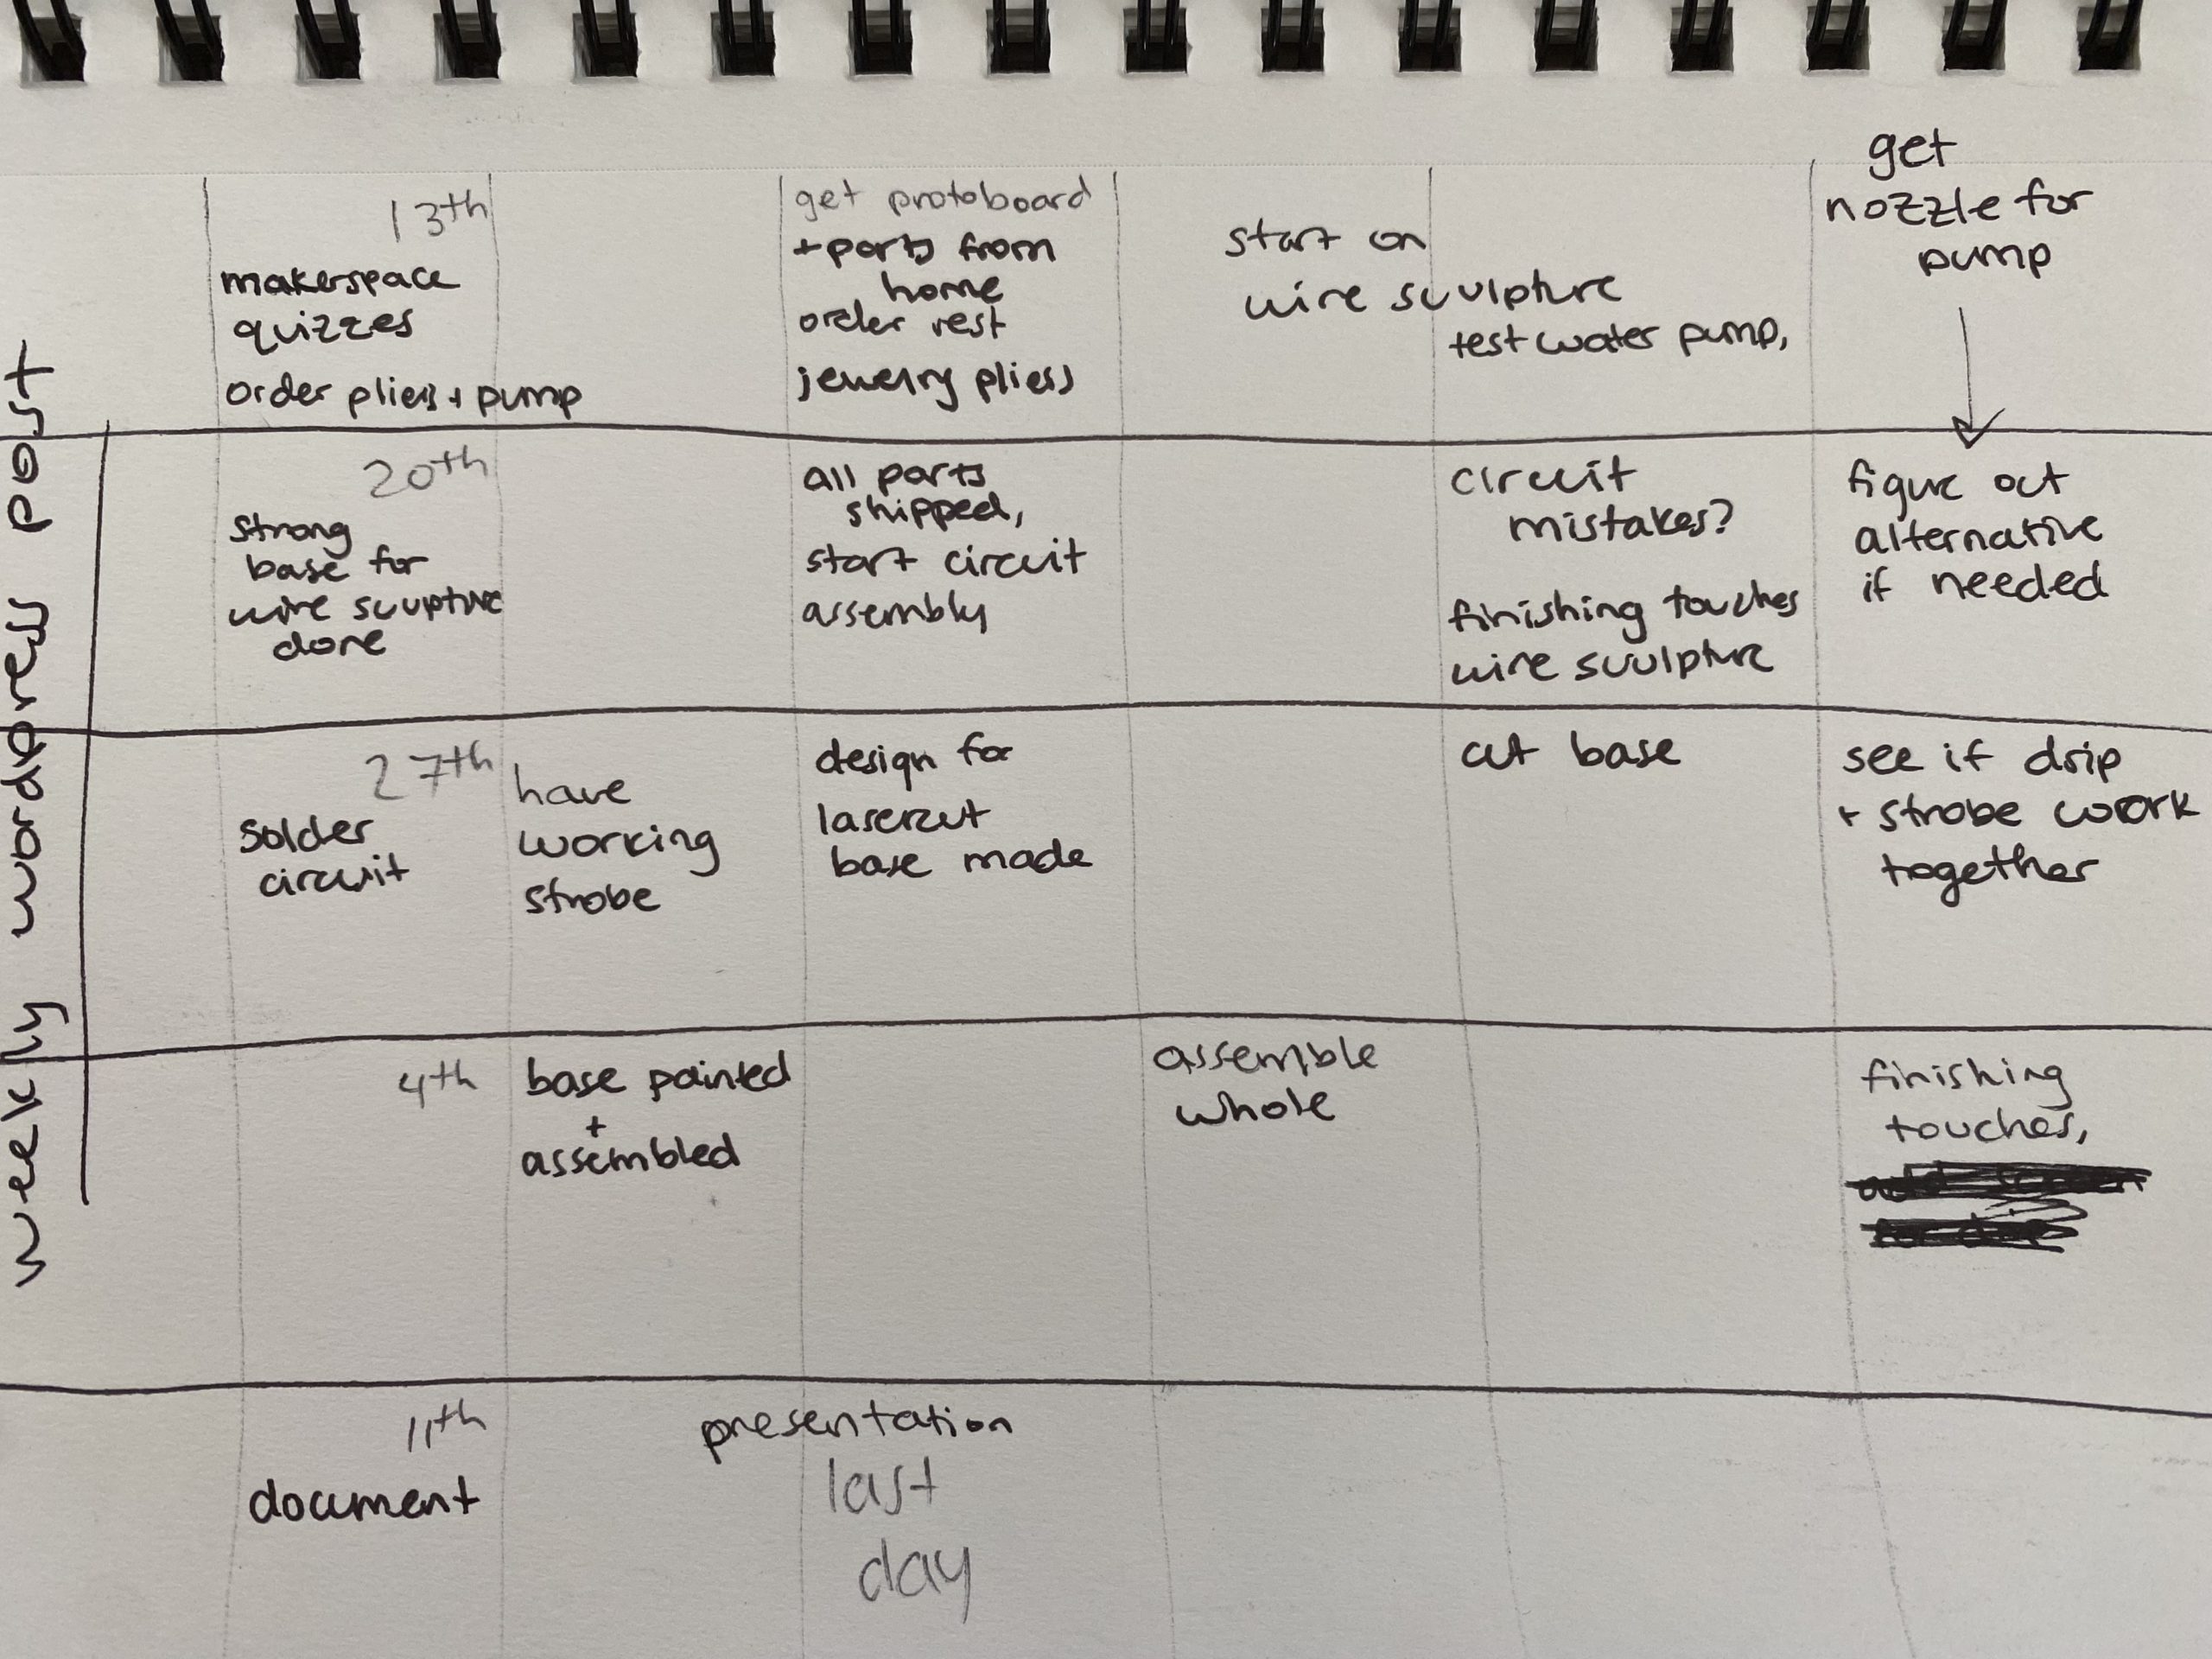 weekly wordpress post
13th
makerspace
quizzes
order pliers + pump
get protoboard
+ parts from
home
order rest
jewelry pliers
start on
wire sculpture
test water pump,
get
nozzle for
pump
20th
strong
base for
wire sculpture
done
all parts
shipped,
start circuit
assembly
circuit
mistakes?
finishing touches
wire sculpture
figure out
alternative
if needed
27th
solder
circuit
have
working
strobe
design for
lasercut
base made
cut base
see if drip
+ strobe work
together
4th
base painted
+
assembled
assemble
whole
finishing
touches,
11th
document
presentation
last
day